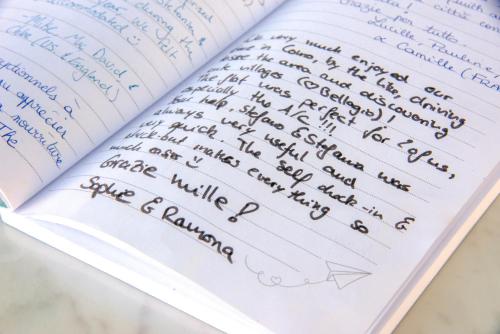 Stefania &
during the
we felt
recommended
Mike Mc David
(US & England)
exceptionnels à
apprécier
nourriture
The
città com
Grazie per tutto,
Lucille, Pauline
& Camille (FRA
We very much enjoyed our
time in Como, by the lake, driving
more the area and discovering
villages (♡ Bellagio)!
The flat was perfect for 2 of us,
especially the A/C !!!
Your help, Stefano & Stefania was
always very useful and
very quick. The self check-in &
check-out makes everything so
much easier
Grazie mille!
Sophie & Ramona